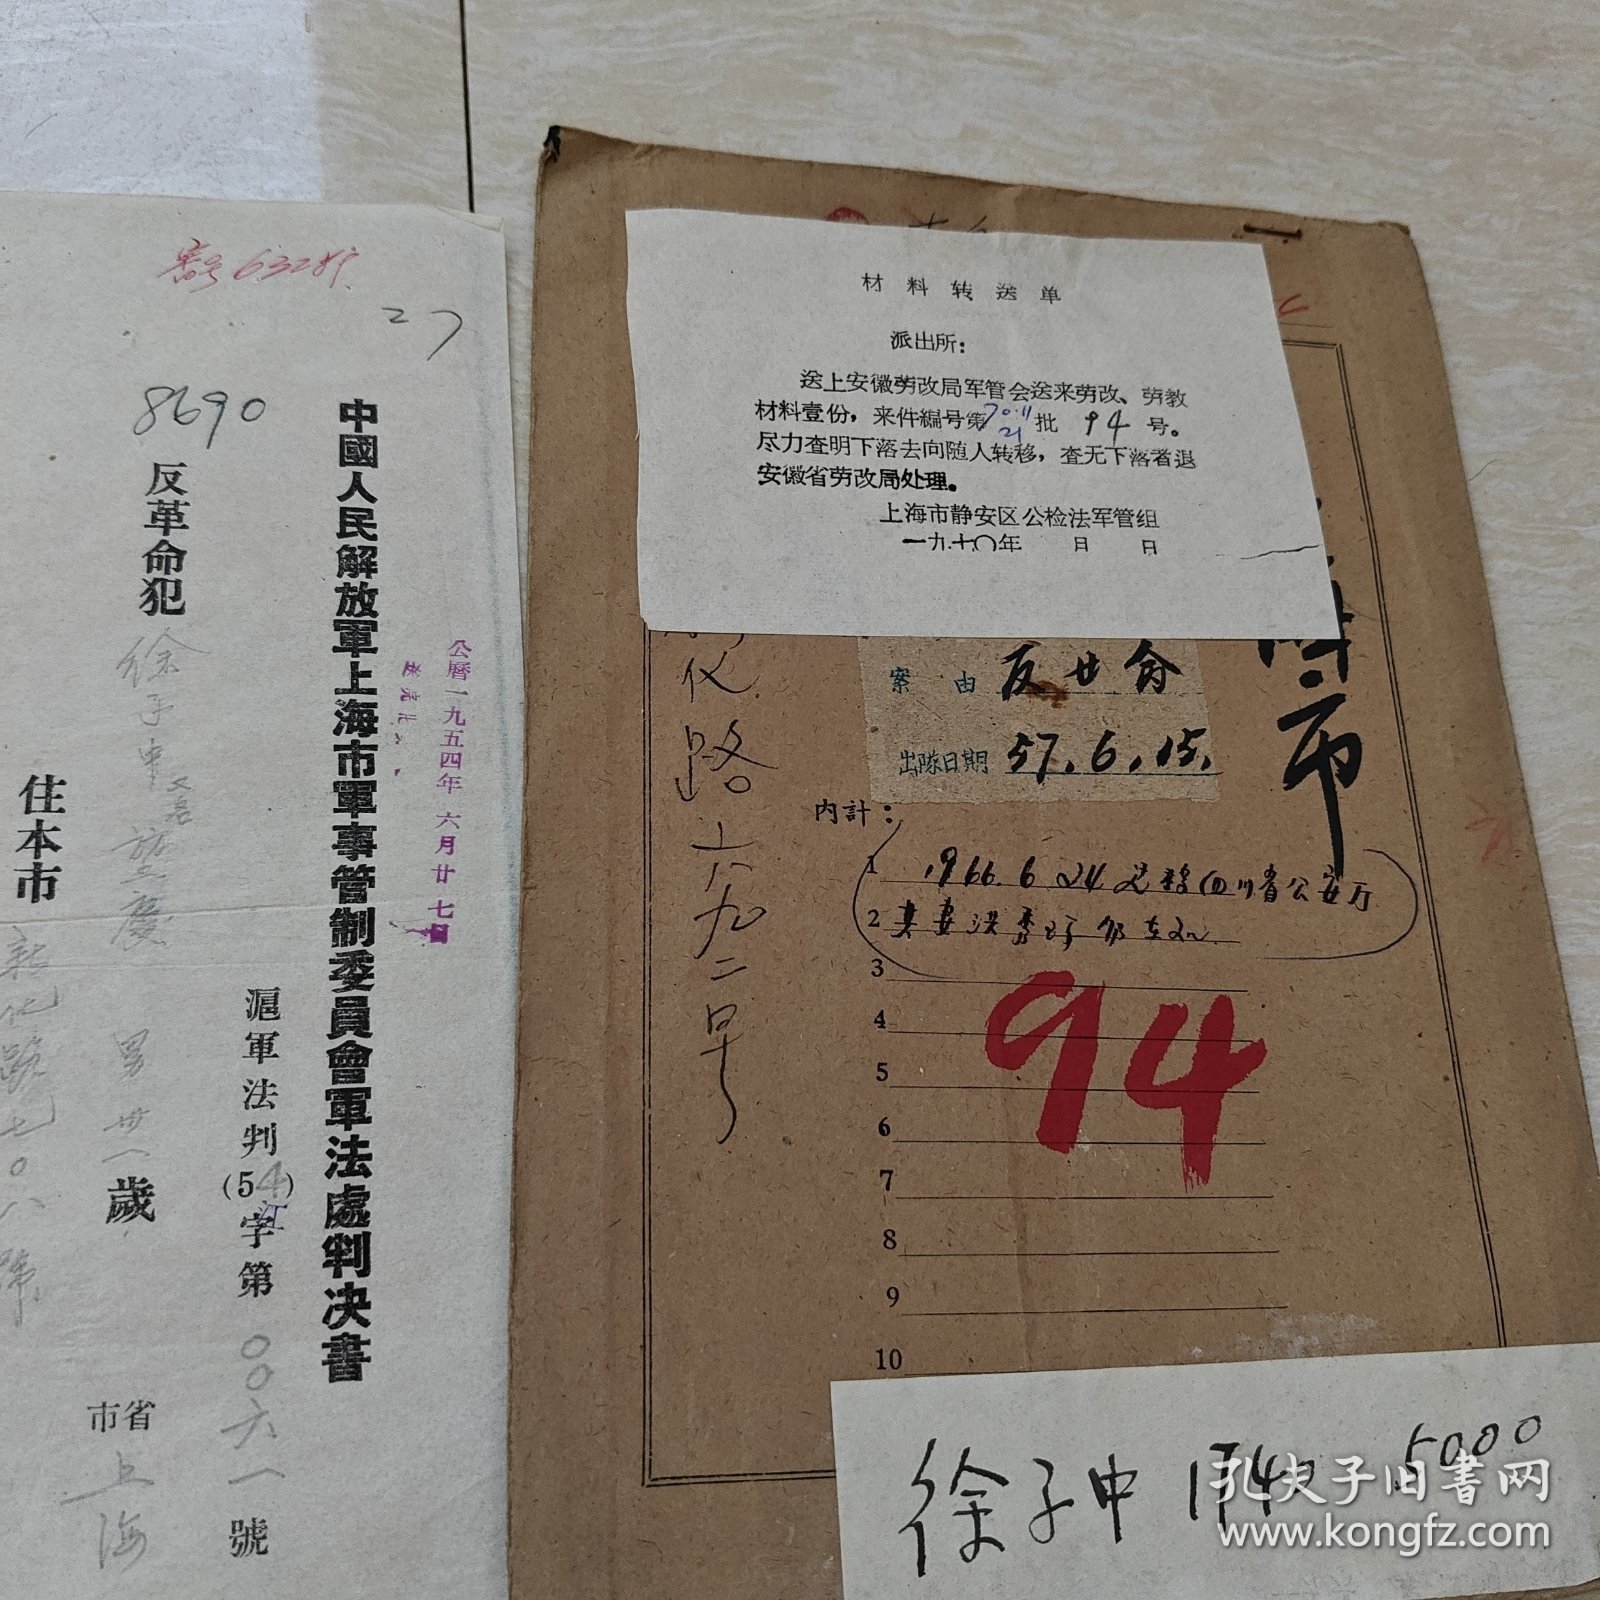 27
8690
公曆一九五四年六月廿七日
中國人民解放軍上海市軍事管制委員會軍法處判决書
滬軍法判(54)字第００六一號
江
反革命犯徐子中 男 卅一歲
省市上海
住本市新化路七〇八號
材料转送单
派出所：
送上安徽劳改局军管会送来劳改、劳教
材料壹份，来件编号第70.11批 94 号。
21
尽力查明下落去向随人转移，查无下落者退
安徽省劳改局处理。
上海市静安区公检法军管组
一九七〇年 月 日
市
化路六九二号
案由
出隊日期 57.6.15.
内計：
1 1966.6.24 四川省公安厅
2 其妻洪秀
3
4
5
6
7
8
9
10
94
徐子中 174 5000
孔夫子旧书网
www.kongfz.com